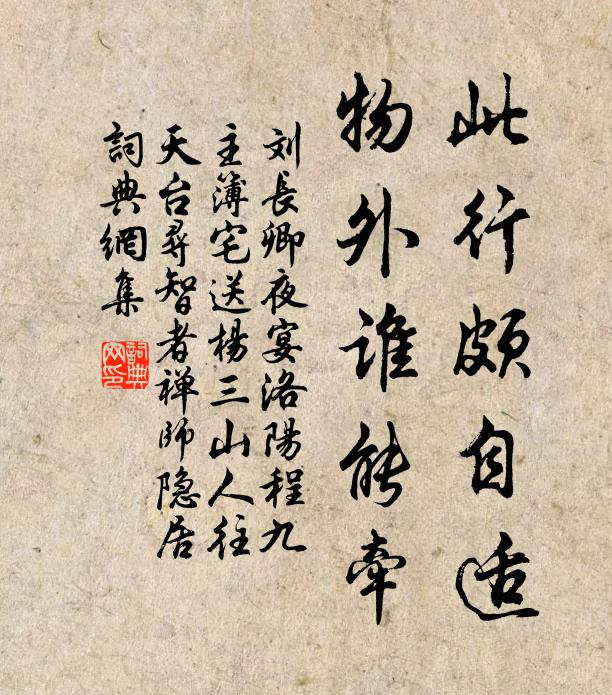 此行颇自适
物外谁能牵
刘長卿夜宴洛陽程九
主簿宅送楊三山人往
天台尋智者禅師隐居
詞典網集
詞典網印